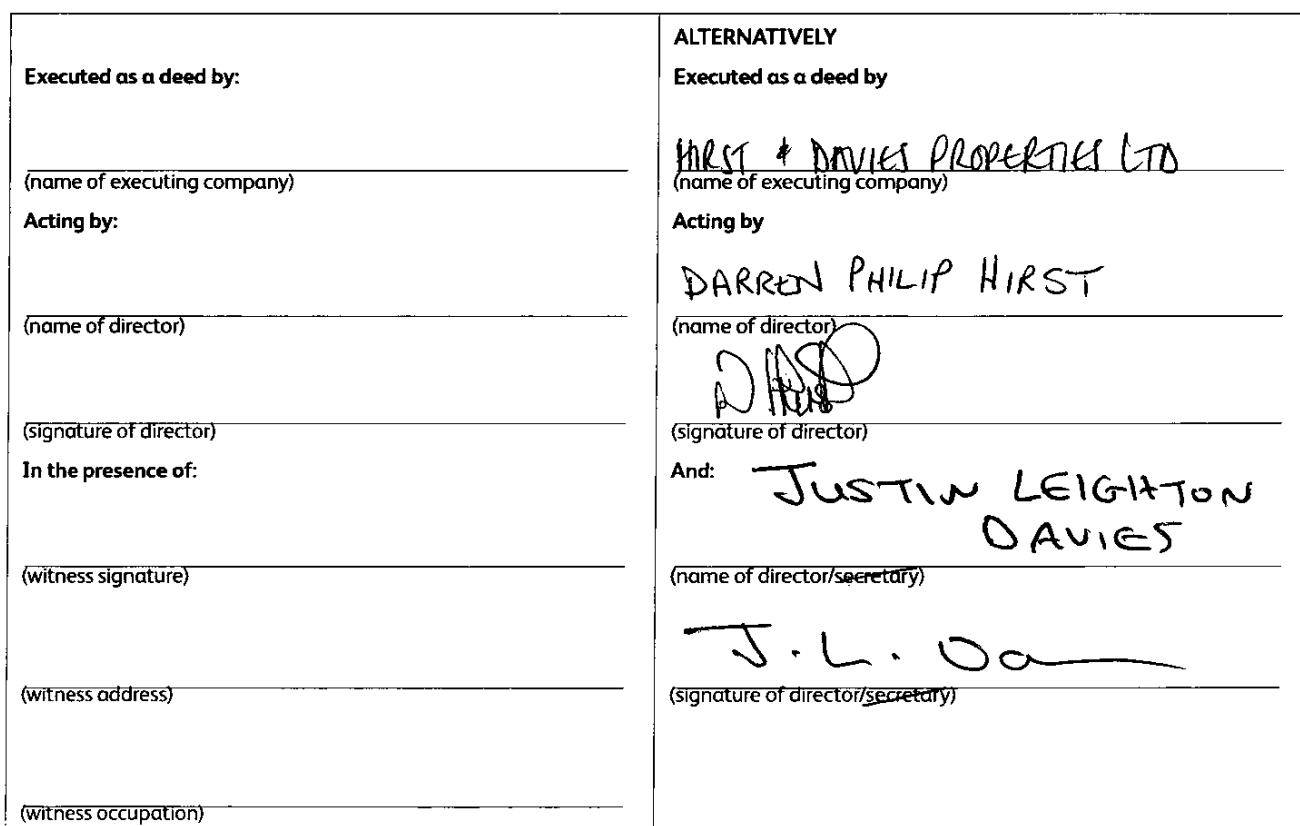 Executed as a deed by:
(name of executing company)
Acting by:
(name of director)
(signature of director)
In the presence of:
(witness signature)
(witness address)
(witness occupation)
ALTERNATIVELY
Executed as a deed by
HIRST & DAVIES PROPERTIES LTD
(name of executing company)
Acting by
DARREN PHILIP HIRST
(name of director)
D Hirst
(signature of director)
And: JUSTIN LEIGHTON
DAVIES
(name of director/secretary)
J. L. Da
(signature of director/secretary)